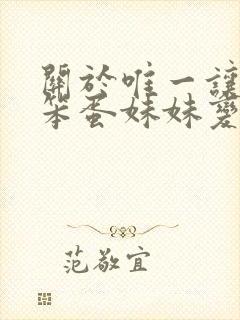 關於唯一讓
笨蛋妹妹變
范敬宜